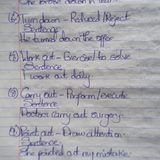 ⑥ Turn down - Reduced/Reject
Sentence
He turned down the offer
⑦ Work out - Exercise/to solve
Sentence
I work out daily
⑧ Carry out - Perform/execute
Sentence
Doctors carry out surgery.
⑨ Point out - Draw attention
Sentence
She pointed out my mistake.